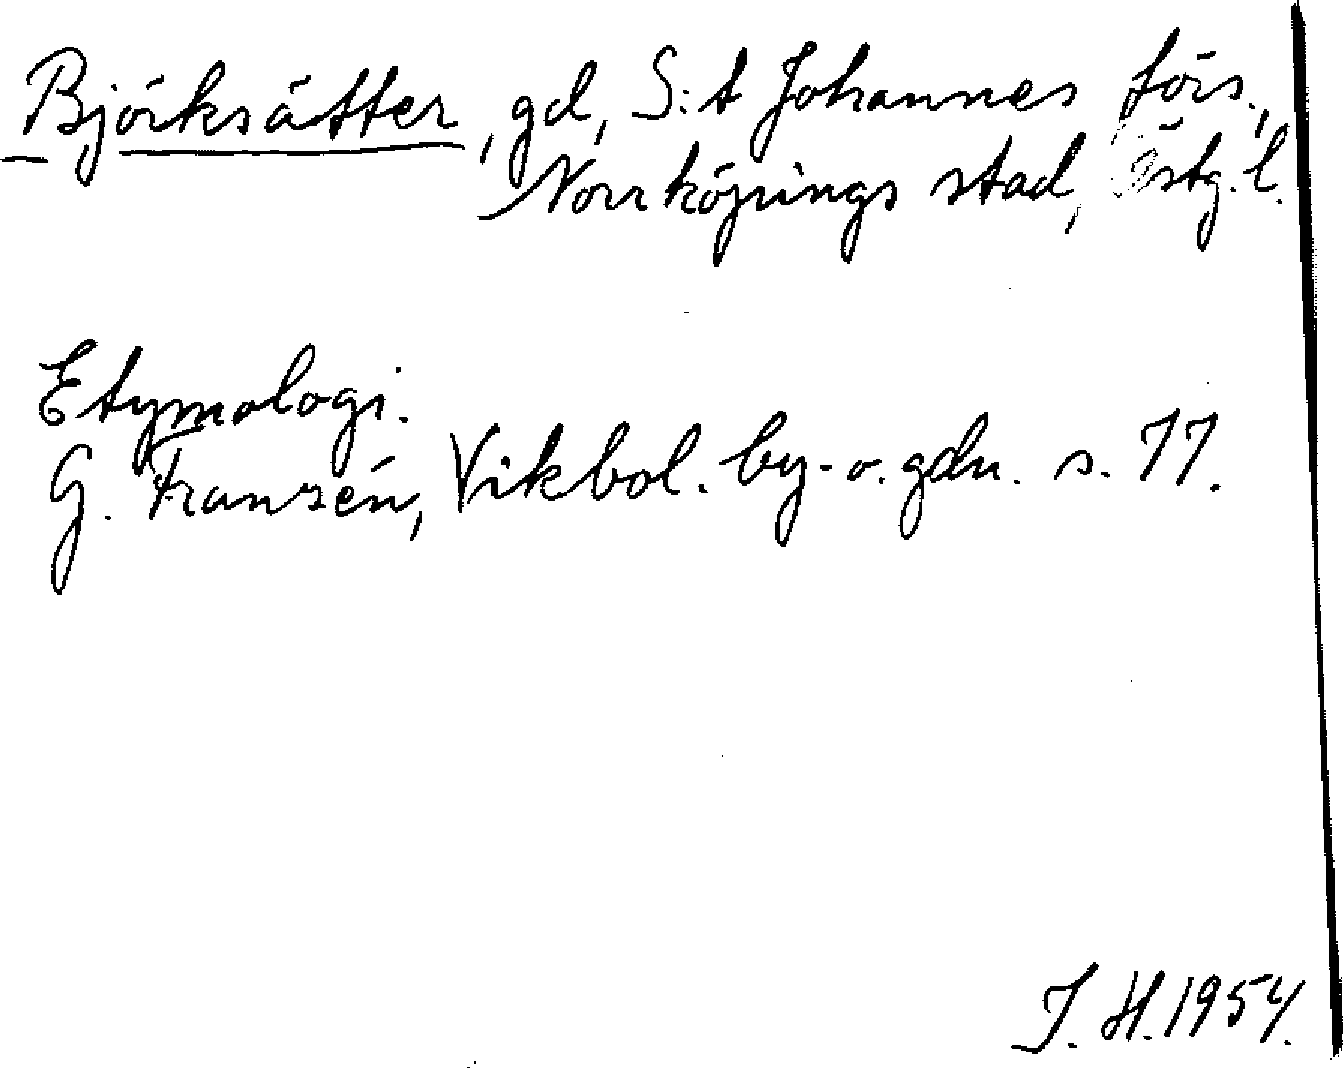 Björksätter, gd, S:t Johannes förs.,
Norrköpings stad, Östg.l.
Etymologi.
G. Franzén, Vikbol. by- o. gdn. s. 77.
J. H. 1954.